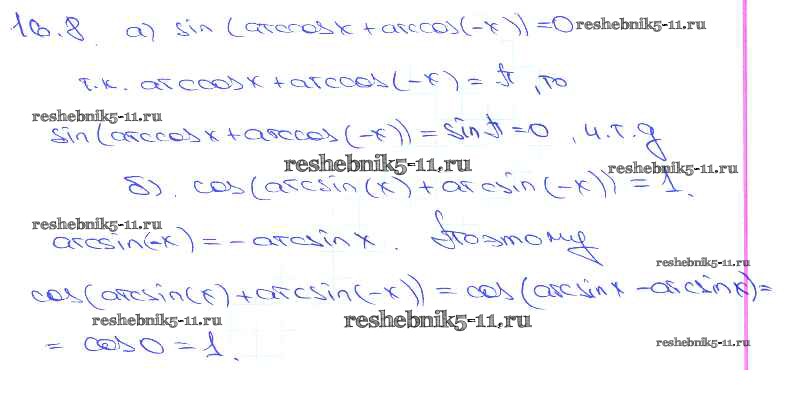 16.8. а) sin (arccosx + arccos(-x)) = 0 reshebnik5-11.ru
т.к. arccosx + arccos(-x) = π, то
reshebnik5-11.ru
sin(arccosx + arccos(-x)) = sinπ = 0, ч.т.д
reshebnik5-11.ru reshebnik5-11.ru
б). cos(arcsin(x) + arcsin(-x)) = 1.
reshebnik5-11.ru
arcsin(-x) = -arcsinx. Поэтому
reshebnik5-11.ru
cos(arcsin(x) + arcsin(-x)) = cos(arcsinx - arcsinx) =
reshebnik5-11.ru reshebnik5-11.ru
= cos0 = 1. reshebnik5-11.ru